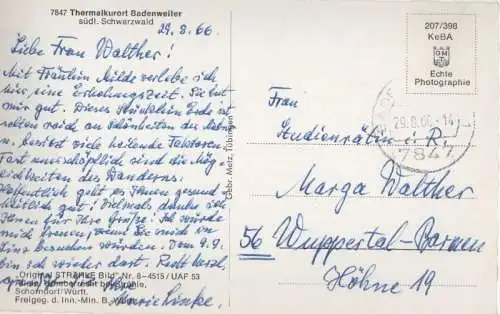 7847 Thermalkurort Badenweiler
südl. Schwarzwald
29.8.66.
Liebe Frau Walther!
Mit Fräulein Milde verlebe ich
hier eine Erholungszeit. Sie tut
mir gut. Dieses Stücklein Erde ist
selten reich an Schönheiten der Natur
u. besitzt viele heilende Faktoren.
Fast unerschöpflich sind die Mög-
lichkeiten des Wanderns.
Hoffentlich geht es Ihnen gesund-
heitlich gut! Vielmals danke ich
Ihnen für Ihre Grüße! Ich würde
mich freuen, wenn Sie mich in
besuchen würden. Dem 9.9.
bin ich wieder dort. Recht herzl.
Ihre
Marie Linke.
"Original STRÄHLE Bild" Nr. 8-4515/UAF 53
Schorndorf/Württ.
Freigeg. d. Inn.-Min. B
Gebr. Metz, Tübingen
207/398
KeBA
Echte
Photographie
29.8.66-14
7847
Frau
Studienrätin i. R.
Marga Walther
56 Wuppertal-Barmen
Höhne 19